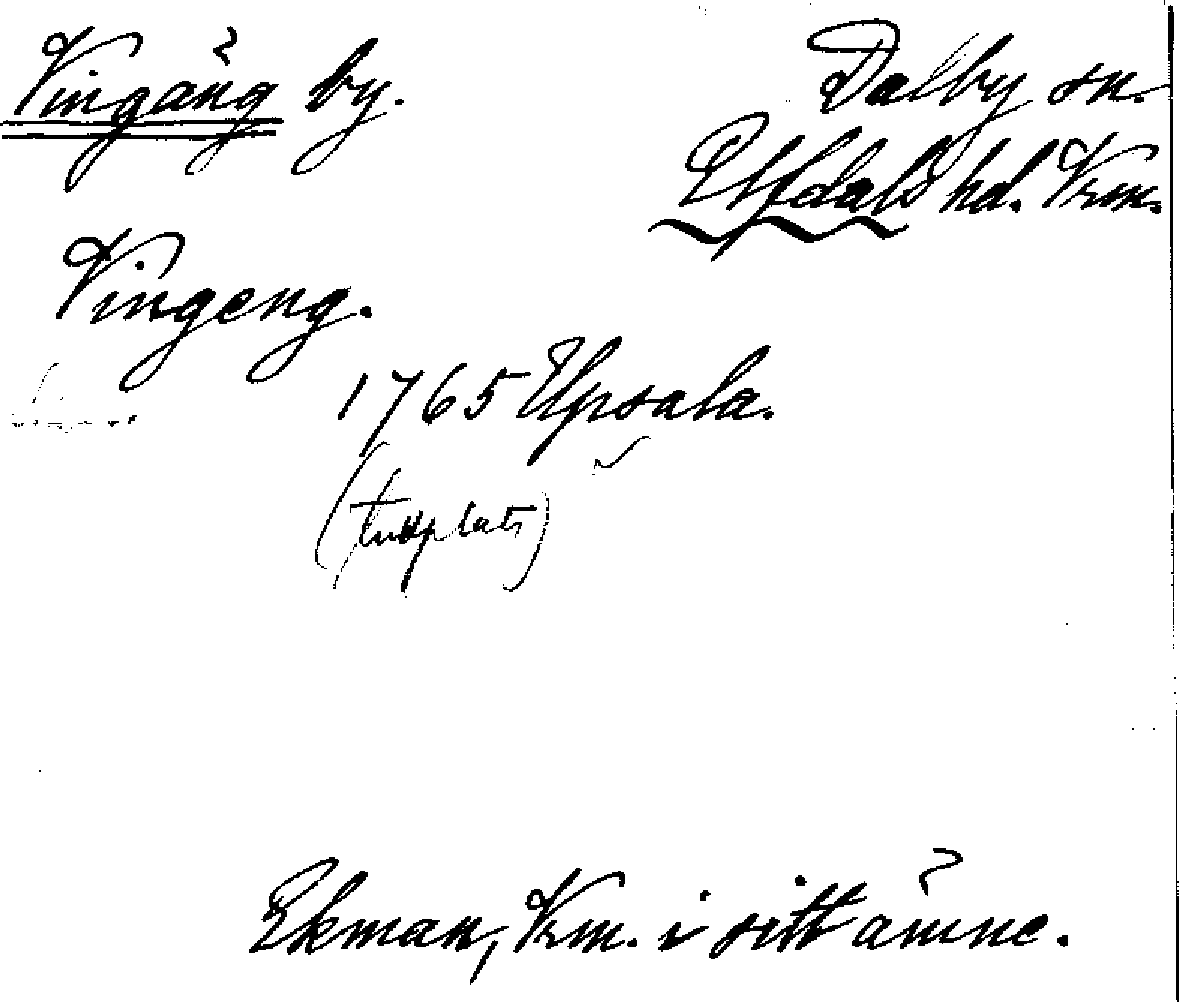 Vingäng by.
Dalby sn.
Elfdals hd. Vrm.
Vingeng.
1765 Upsala.
(tryckplats)
Ekman, Vrm. i sitt ämne.